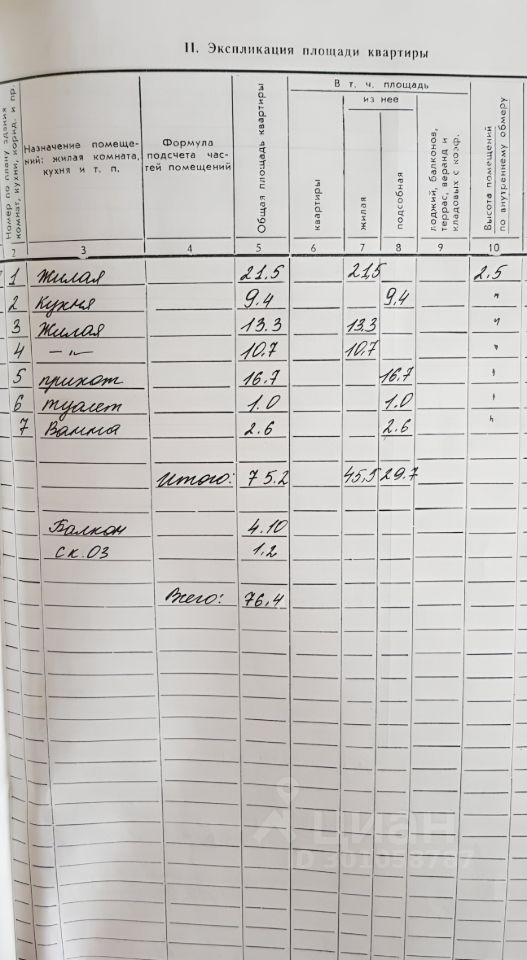 II. Экспликация площади квартиры
Номер по плану здания комнат, кухни, корид. и пр.
Назначение помеще-
ний: жилая комната,
кухня и т. п.
Формула
подсчета час-
тей помещений
Общая площадь квартиры
В т. ч. площадь
из нее
квартиры
жилая
подсобная
лоджий, балконов,
террас, веранд и
кладовых с коэф.
Высота помещений
по внутреннему обмеру
2 3 4 5 6 7 8 9 10
1 Жилая 21.5 21,5 2.5
2 Кухня 9.4 9,4 "
3 Жилая 13.3 13.3 "
4 —"— 10.7 10,7 "
5 прихот 16.7 16.7 "
6 туалет 1.0 1.0 "
7 Ванна 2.6 2.6 "
Итого: 75.2 45,5 29.7
Балкон 4.10
ск.03 1,2
Всего: 76,4
Циан